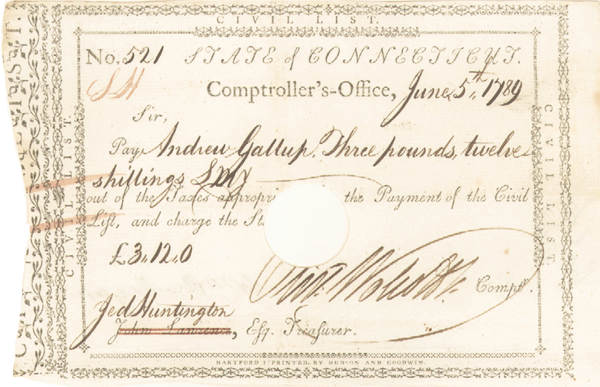 CIVIL LIST.
No. 521 STATE of CONNECTICUT.
Comptroller's-Office, June 5th, 1789
Sir,
Pay Andrew Gallup. Three pounds, twelve
shillings L My
out of the Taxes appropri the Payment of the Civil
List, and charge the St
£3.12.0
Olivr Wolcott Comptr.
Jed Huntington
John Lawrence, Esq. Treasurer.
HARTFORD: PRINTED, BY HUDSON AND GOODWIN.
CIVIL LIST.
CIVIL LIST.